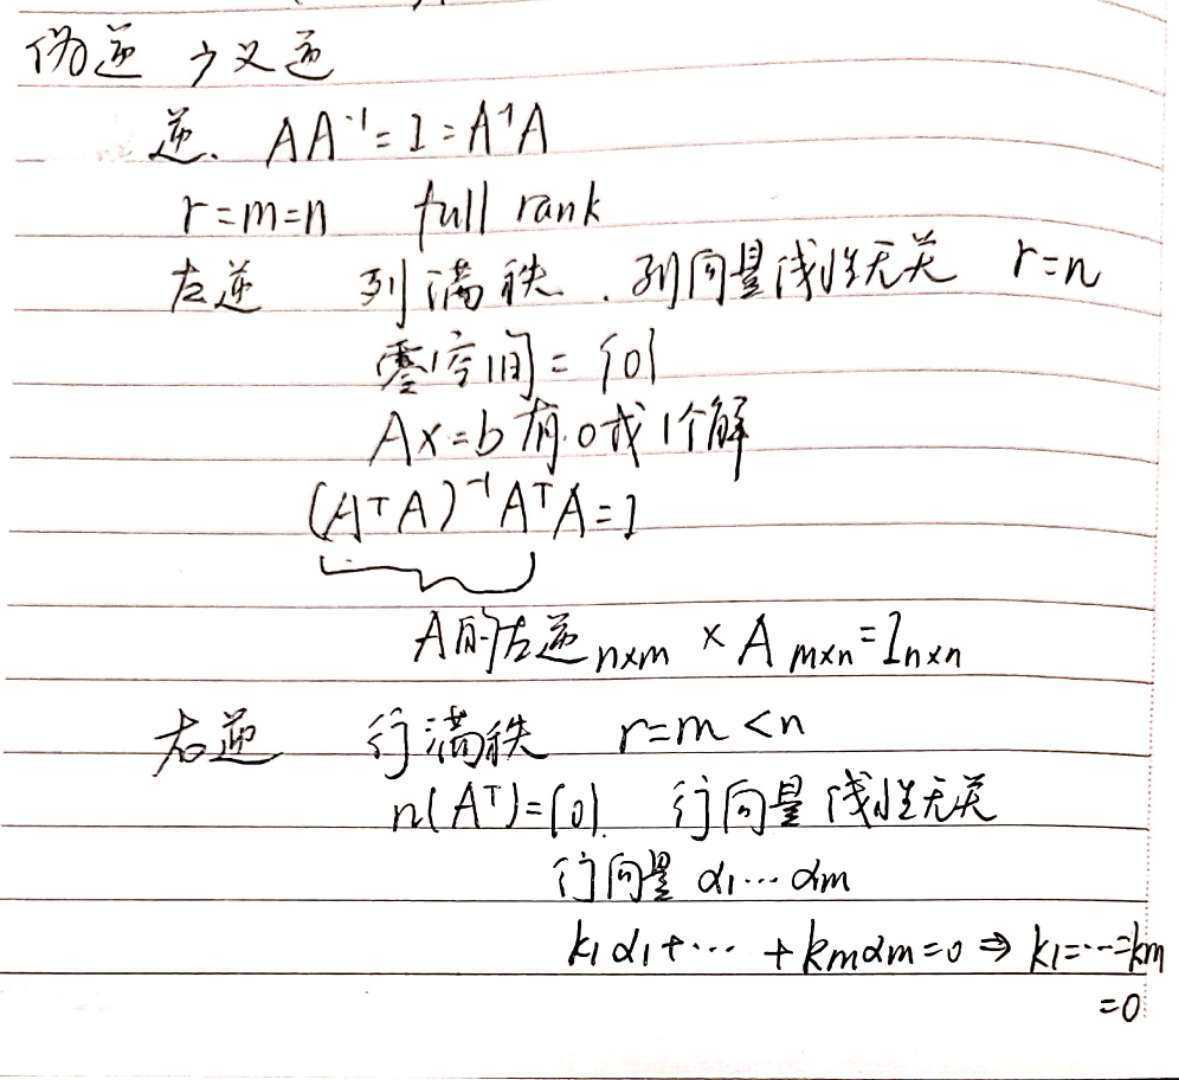 伪逆 广义逆
逆. AA⁻¹=I=A⁻¹A
r=m=n full rank
左逆 列满秩. 列向量线性无关 r=n
零空间={0}
Ax=b有0或1个解
(AᵀA)⁻¹AᵀA=I
A的左逆n×m × A m×n=I n×n
右逆 行满秩 r=m<n
n(Aᵀ)={0}. 行向量线性无关
行向量 α1…αm
k1α1+… +kmαm=0 ⇒ k1=…=km
=0